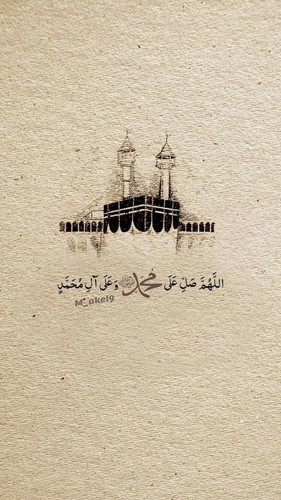 اللَّهُمَّ صَلِّ عَلَى مُحَمَّد ﷺ وَعَلَى آلِ مُحَمَّدٍ
M_akel9